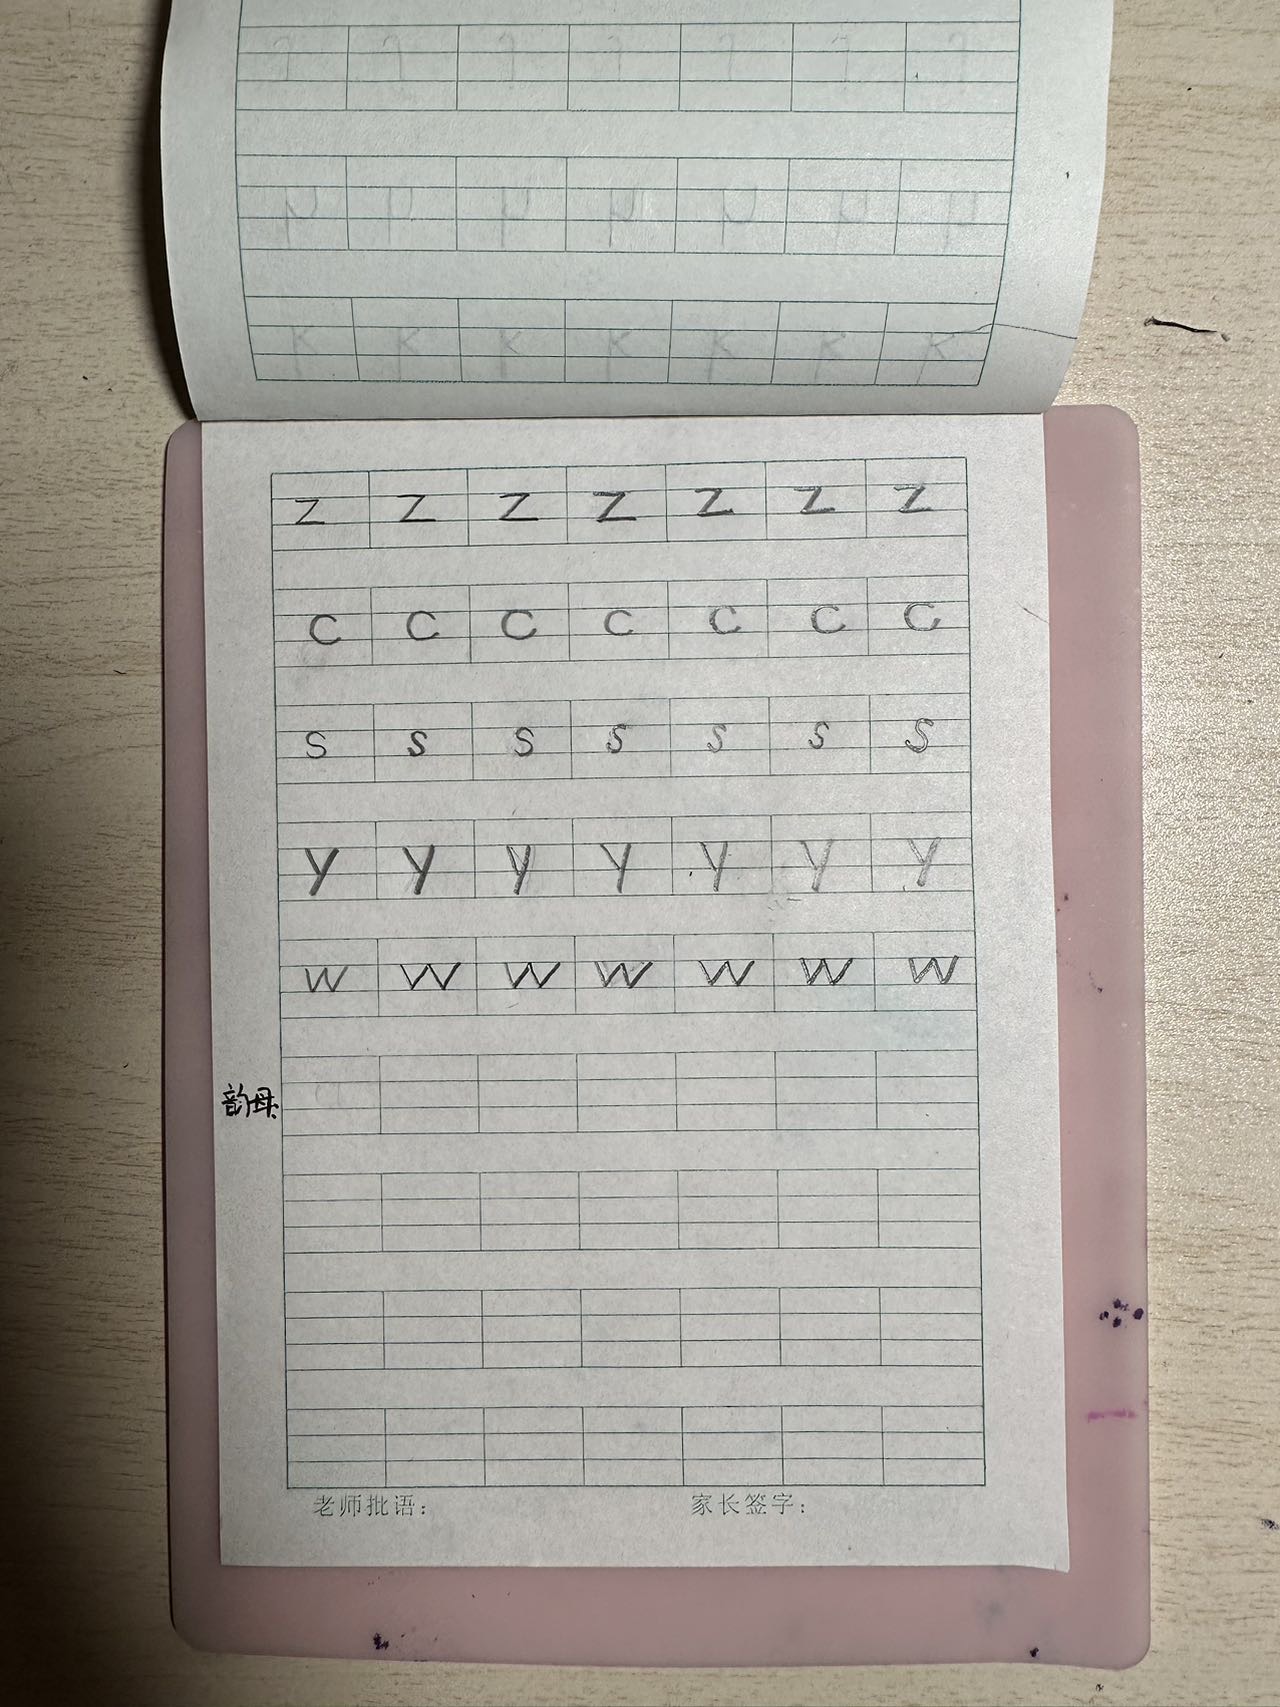 z z z z z z z
c c c c c c c
s s s s s s s
y y y y y y y
w w w w w w w
韵母:
老师批语: 家长签字: